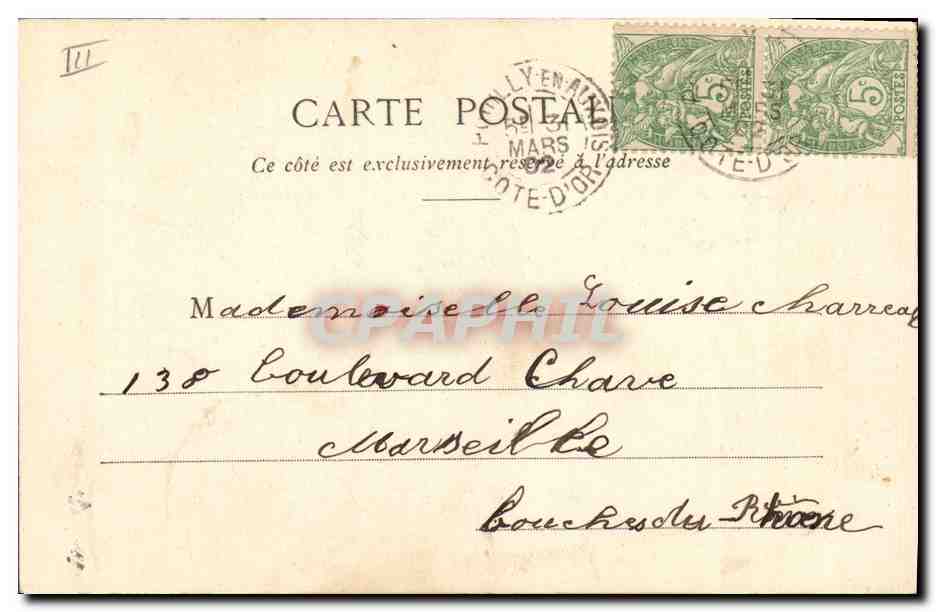 III
CARTE POSTALE
Ce côté est exclusivement réservé à l'adresse
POUILLY-EN-AUXOIS
31
MARS
02
CÔTE-D'OR
5c
POSTES
5c
POSTES
CÔTE-D'OR
Mademoiselle Louise Charreau
138 boulevard Chave
Marseille
bouches du-Rhône
CPAPHIL